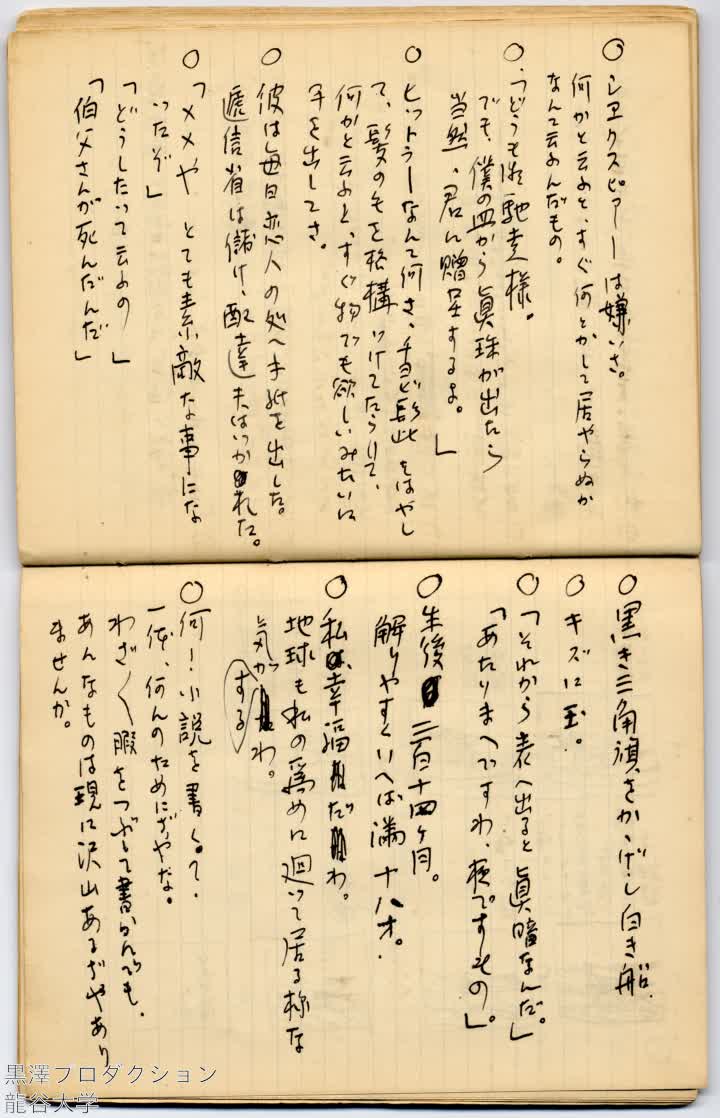 ○シヱクスピアーは嫌いさ。
何かと云ふと、すぐ何とかして居やらぬか
なんて云ふんだもの。
○「どうも御馳走様。
でも、僕の皿から眞珠が出たら
当然、君に贈呈するよ。」
○ヒットラーなんて何さ、チョビ髭をはやし
て、髪の毛を格構つけてたらして、
何かと云ふと、すぐ物でも欲しいみたいに
手を出してさ。
○彼は毎日恋人の処へ手紙を出した。
逓信省は儲け、配達夫はつかれた。
○「メメや とても素敵な事にな
つたぞ」
「どうしたつて云ふの」
「伯父さんが死んだんだ」
○黒き三角旗さかゝげし白き船
○キズに玉。
○「それから表へ出ると眞暗なんだ。」
「あたりまへですわ、夜ですもの」。
○生後二百十四ヶ月。
解りやすくいへば満十八才。
○私、幸福だわ。
地球も私の為めに廻つて居る様な
気がするわ。
○何！小説を書くつて、
一体、何んのためにぢやな。
わざ〱暇をつぶして書かんでも、
あんなものは現に沢山あるぢやあり
ませんか。
黒澤プロダクション
龍谷大学